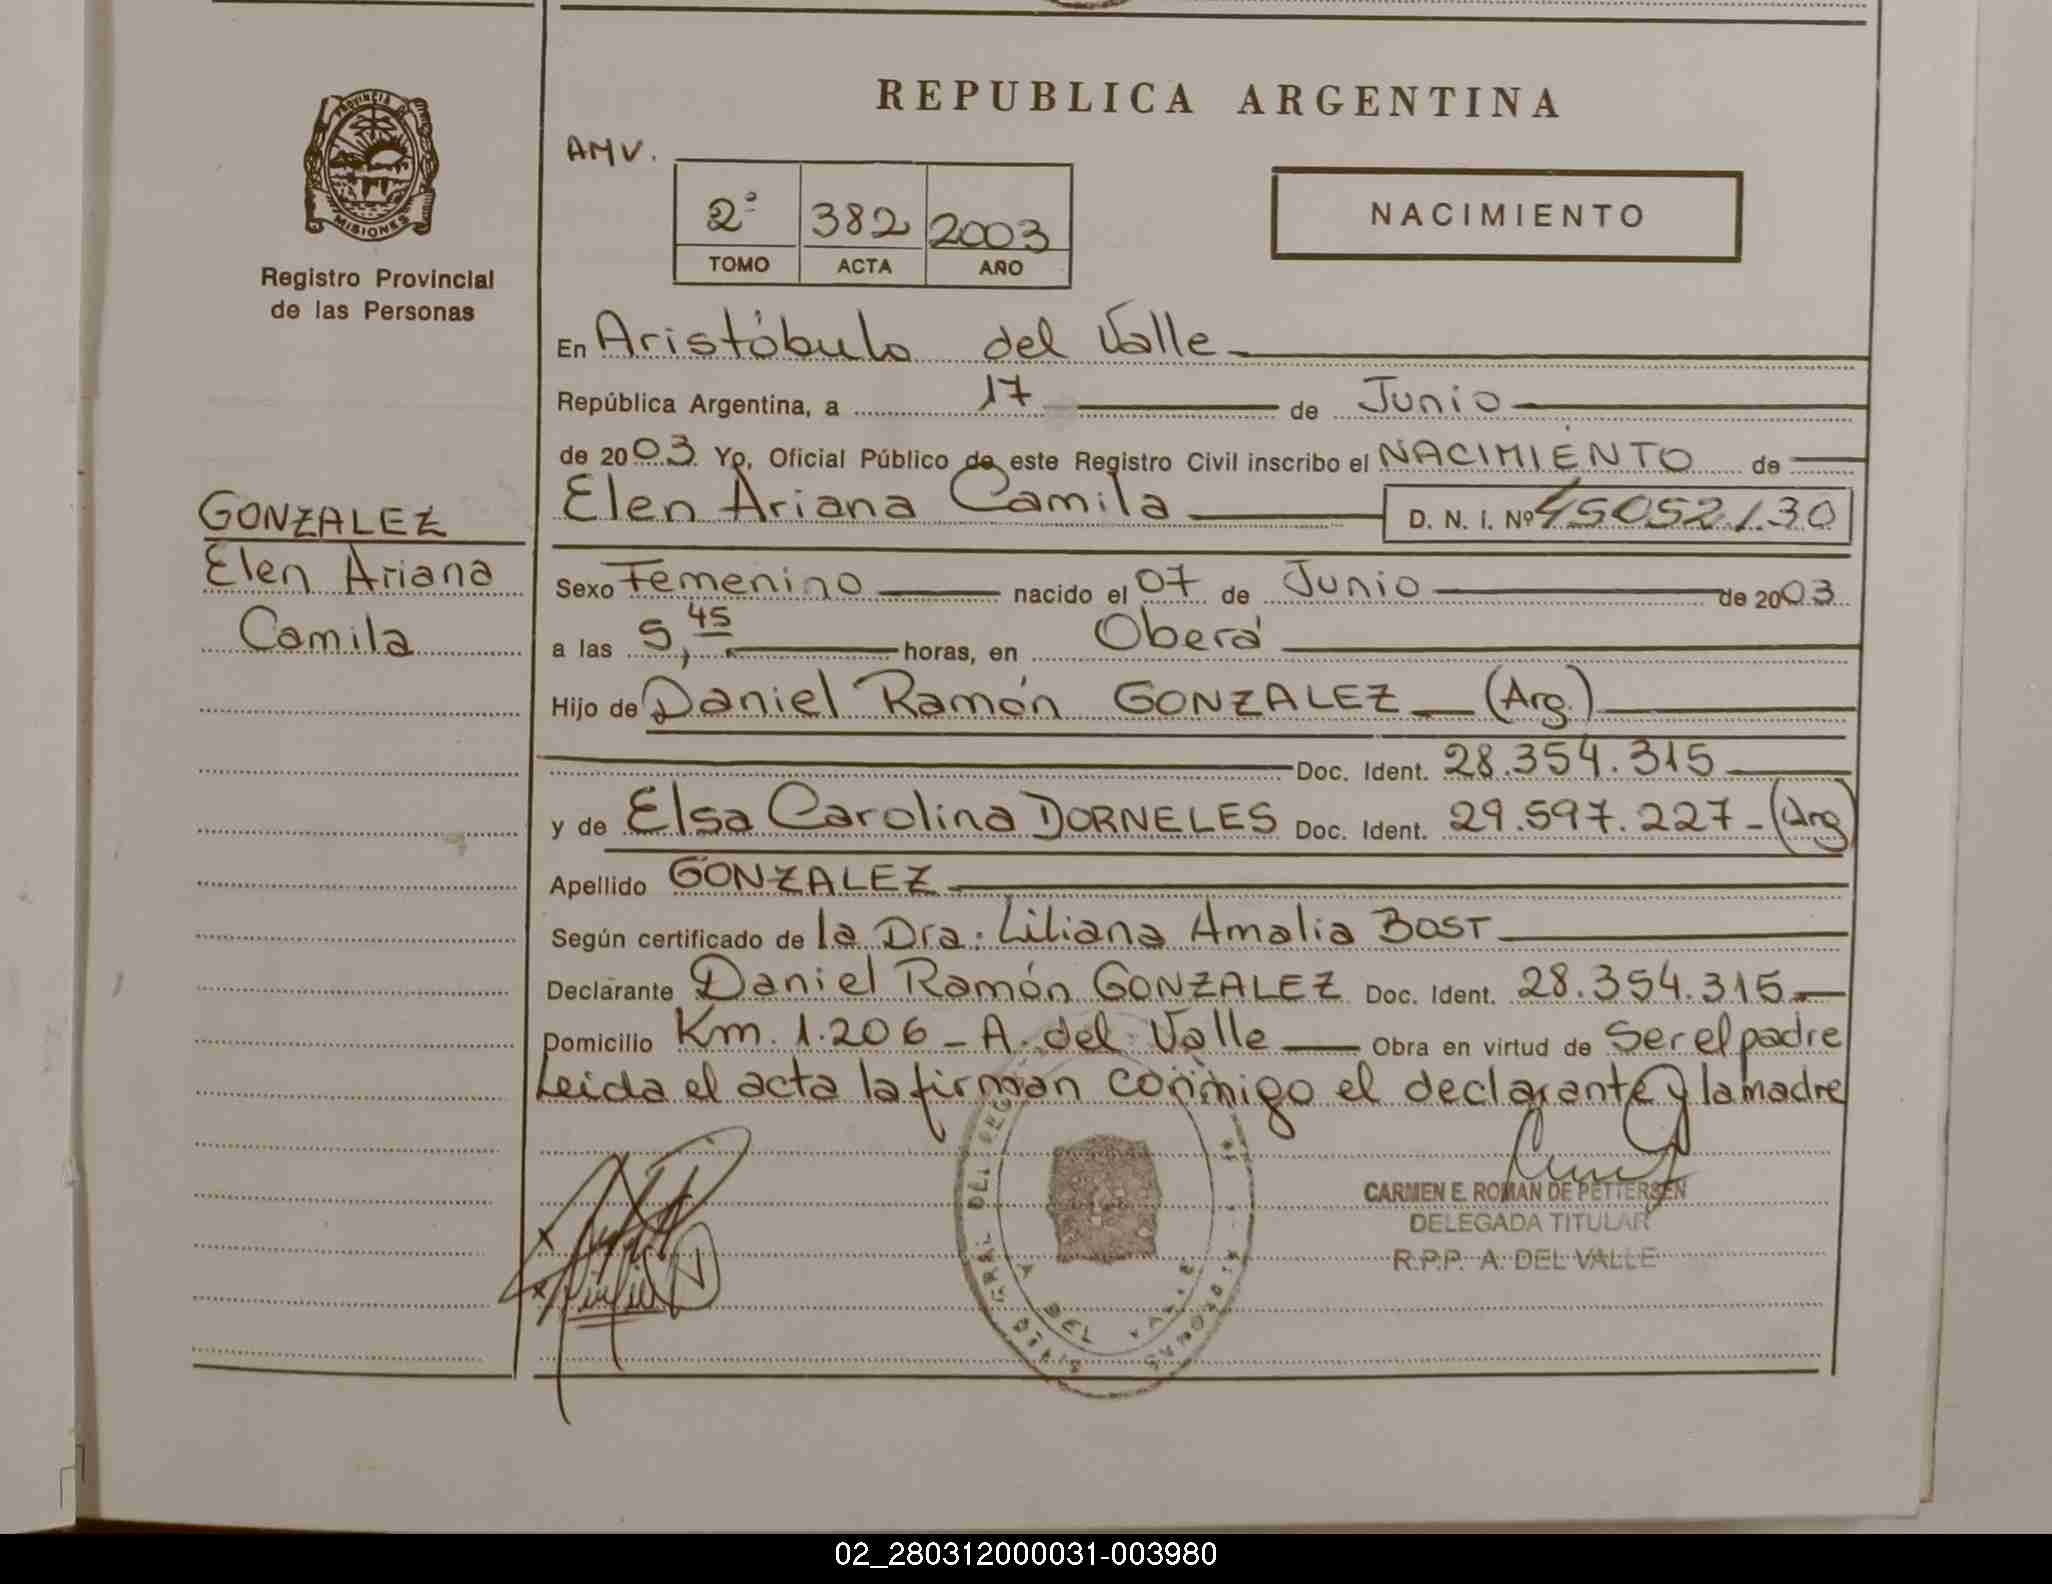 REPUBLICA ARGENTINA
PROVINCIA DE
MISIONES
Registro Provincial
de las Personas
AMV.
2º 382 2003
TOMO ACTA AÑO
NACIMIENTO
En Aristóbulo del Valle
República Argentina, a 17 de Junio
de 2003 Yo, Oficial Público de este Registro Civil inscribo el NACIMIENTO de
Elen Ariana Camila D. N. I. Nº 45052130
GONZALEZ
Elen Ariana
Camila
Sexo Femenino nacido el 07 de Junio de 2003
a las 5,45 horas, en Oberá
Hijo de Daniel Ramón GONZALEZ (Arg.)
Doc. Ident. 28.354.315
y de Elsa Carolina DORNELES Doc. Ident. 29.597.227 - (Arg)
Apellido GONZALEZ
Según certificado de la Dra. Liliana Amalia BOST
Declarante Daniel Ramón GONZALEZ Doc. Ident. 28.354.315
Domicilio Km. 1.206 - A. del Valle Obra en virtud de Ser el padre
Leida el acta la firman conmigo el declarante y la madre
CARMEN E. ROMAN DE PETTERSEN
DELEGADA TITULAR
R.P.P. A. DEL VALLE
02_280312000031-003980